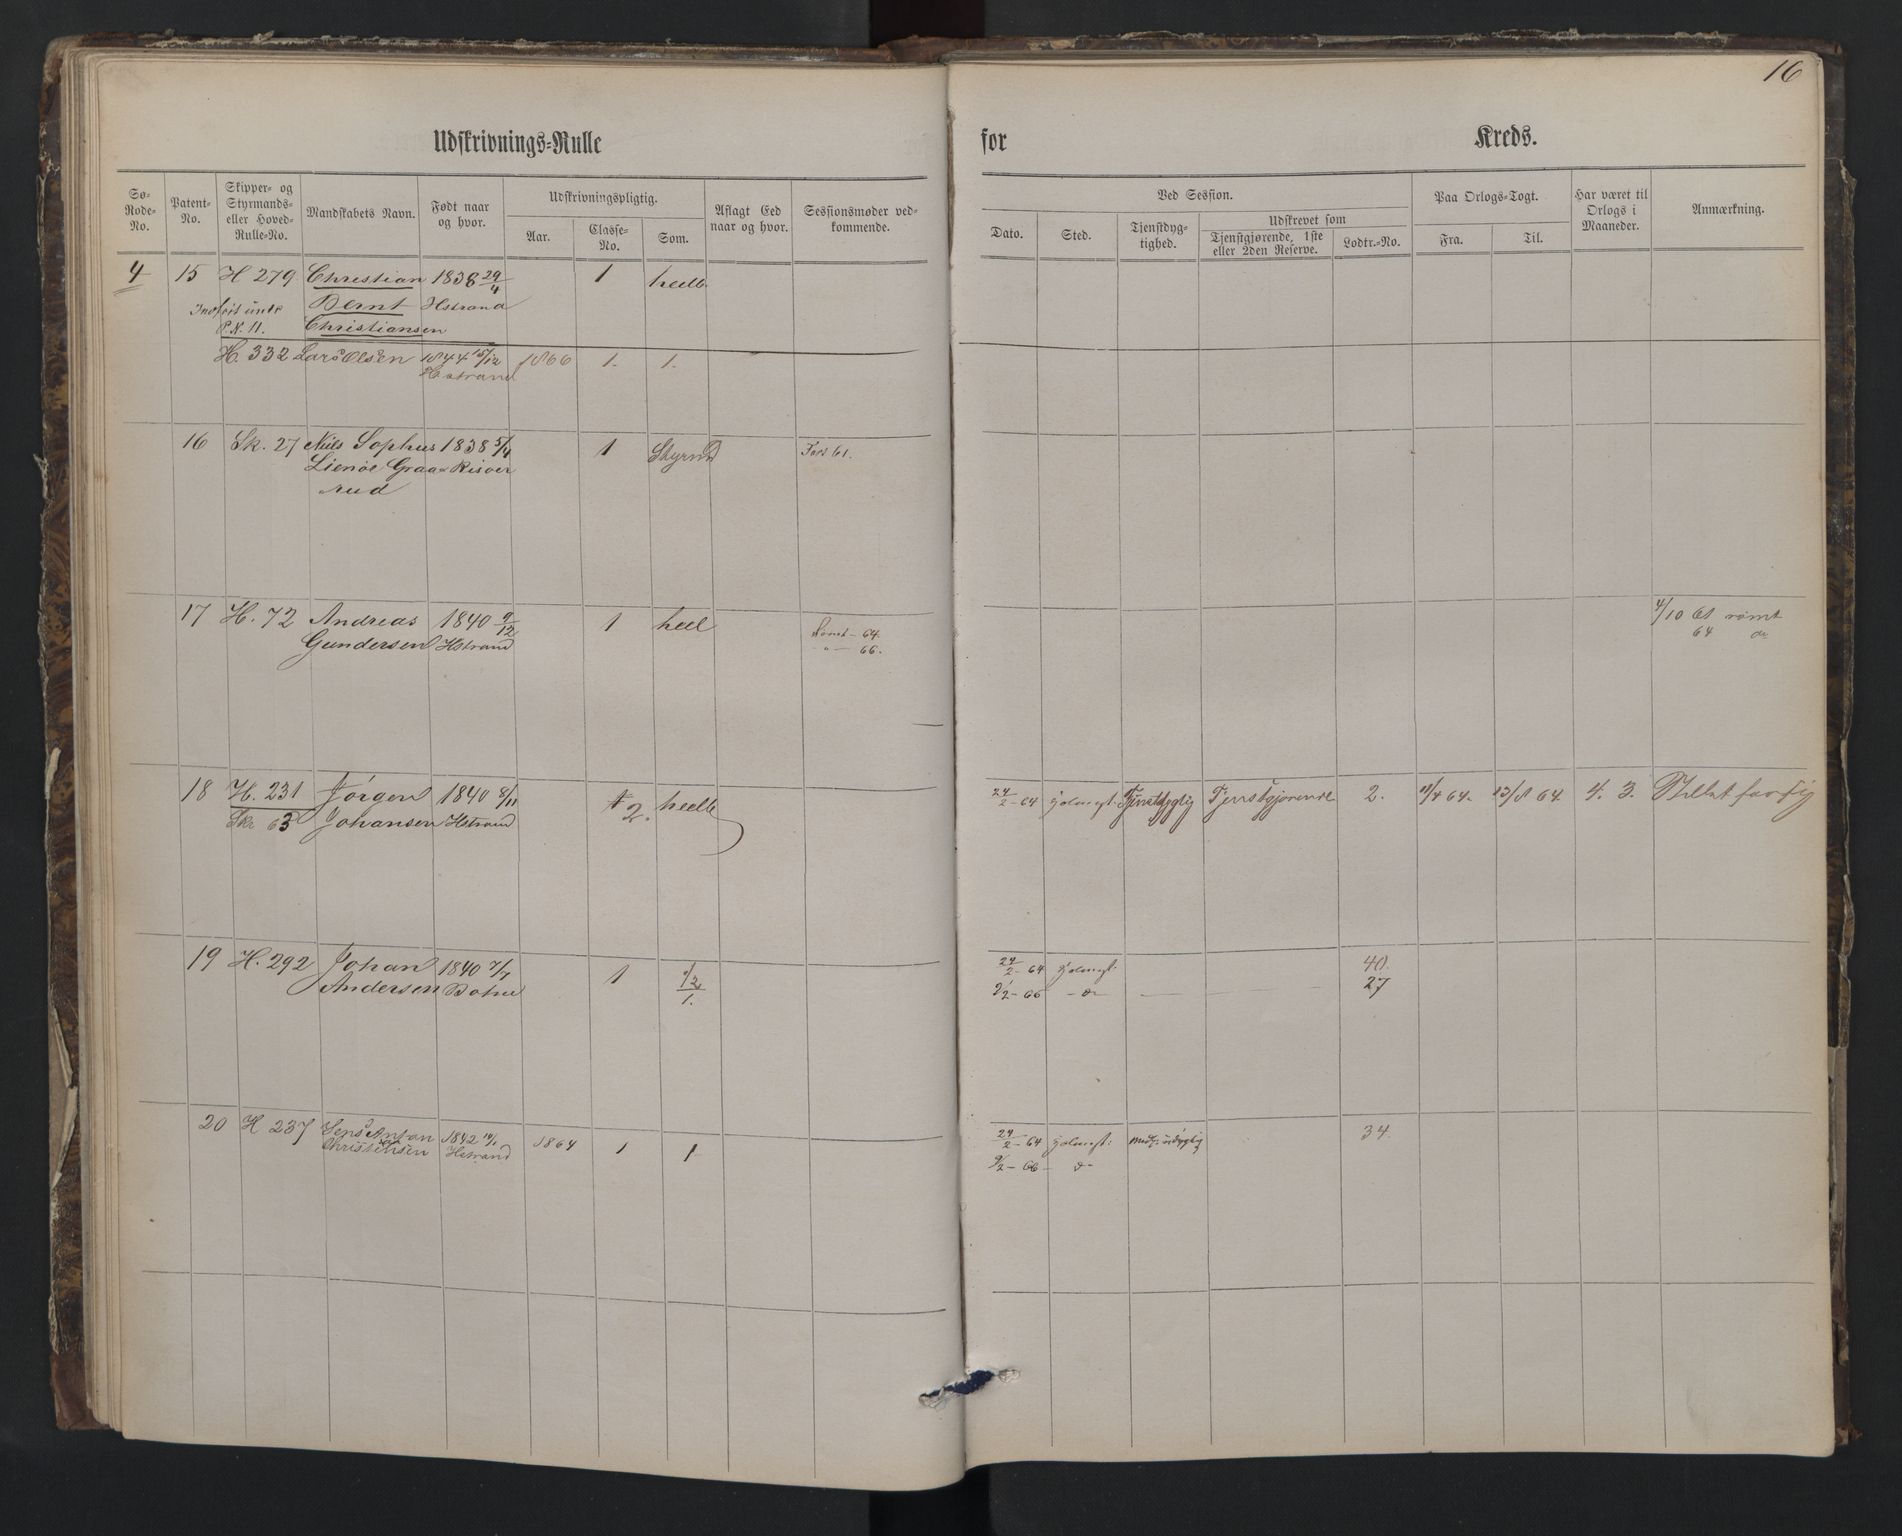 16
Udskrivnings-Rulle for Kreds.
Sø-Rode-No.
Patent-No.
Skipper- og Styrmands- eller Hoved-Rulle-No.
Mandskabets Navn.
Født naar og hvor.
Udskrivningspligtig.
Aar.
Classe-No.
Som.
Aflagt Eed naar og hvor.
Sessionsmøder vedkommende.
Ved Session.
Dato.
Sted.
Tjenstdygtighed.
Udskrevet som
Tjenstgjørende, 1ste eller 2den Reserve.
Lodtr.-No.
Paa Orlogs-Togt.
Fra.
Til.
Har været til Orlogs i Maaneder.
Anmærkning.
4 15 H 279 Christian 1838 29/4 1 heelb
Bernt Hstrand
P.N. 11. Christiansen
H. 332 Lars Olsen 1844 15/12 1866 1. 1.
Hstrand
16 Sk. 27 Niels Sophus 1838 5/4 1 Styrmd
Lienöe Graa- Risöer
rud
17 H. 72 Andreas 1840 9/12 1 heel 4/10 61 rømt
Gundersen Hstrand Rømt - 64. 64 do
- " - 66.
18 H. 231 Jörgen 1840 8/11 1 heelb 24/2 - 64 Holmest. Tjenstdygtig Tjenstgjørende 2. 11/4 64. 13/8 64. 4. 3. Stillet for sig
Sk. 63 Johansen Hstrand 2.
19 H. 292 Johan 1840 7/7 1 1/2 24/2 - 64 Holmest. 40.
Andersen Botne 1. 9/2 - 66 - do - 27
20 H 237 Jens Anton 1842 14/1 1864 1 1 24/2 - 64 Holmest: 34.
Christensen Hstrand 9/2 - 66 - do